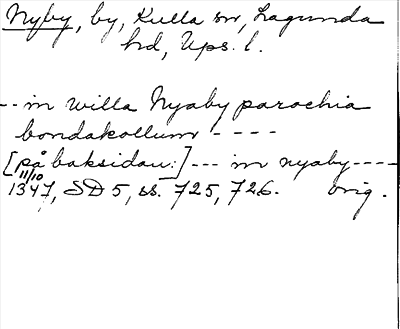 Nyby, by, Kulla sn, Lagunda
hd, Ups. l.
-- in willa Nyaby parochia
bondakollum - - - -
[på baksidan:] --- in nyaby ----
11/10
1347, SD 5, ss. 725, 726. orig.